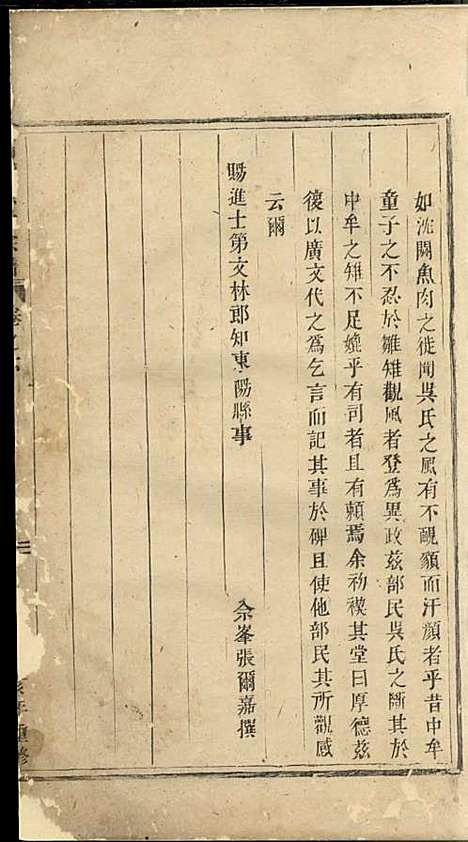 如沈鬭魚肉之徒聞吳氏之風有不靦顙而汗顏者乎昔中牟
童子之不忍於雛雉觀風者登為異政茲部民吳氏之斷其於
中牟之雉不足嬈乎有司者且有頼焉余初襆其堂曰厚德茲
復以廣文代之為乞言而記其事於碑且使他部民其所觀感
云爾
賜進士第文林郎知東陽縣事 佘峯張爾嘉撰
卷之
重修